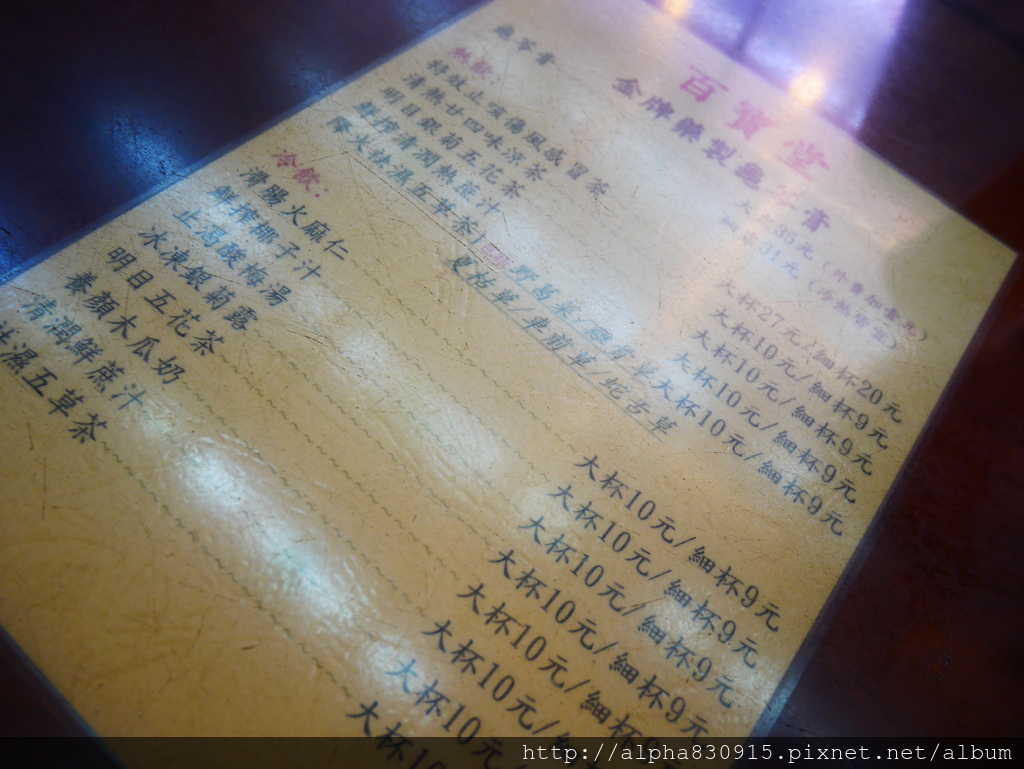 百寶堂
金牌藥製龜苓膏
龜苓膏 35元(外賣加壹元)
31元
熱飲:
特效止咳傷風感冒茶 大杯27元/細杯20元
清熱廿四味涼茶 大杯10元/細杯9元
明目銀菊五花茶 大杯10元/細杯9元
鮮搾清潤熱蔗汁 大杯10元/細杯9元
降火祛濕五草茶 大杯10元/細杯9元
夏枯草/車前草/蛇舌草
冷飲:
滑腸火麻仁 大杯10元/細杯9元
鮮搾椰子汁 大杯10元/細杯9元
止渴酸梅湯 大杯10元/細杯9元
冰凍銀菊露 大杯10元/細杯9元
明目五花茶 大杯10元/細杯9元
養顏木瓜奶 大杯10元/
清潤鮮蔗汁 大杯10元
祛濕五草茶 大杯10
http://alpha830915.pixnet.net/album